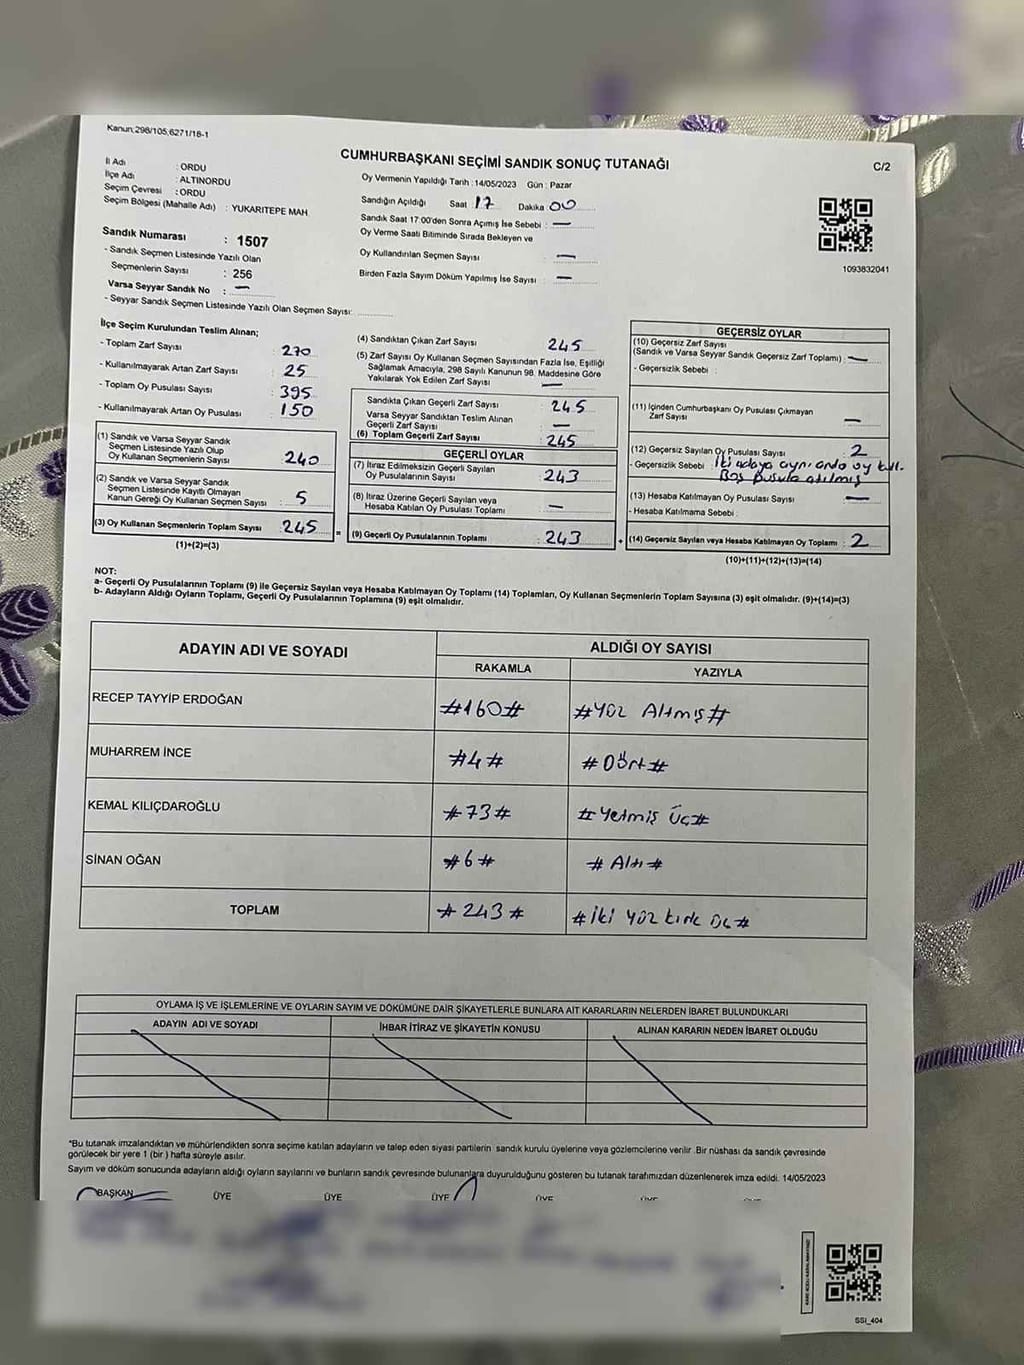 Kanun;298/105;6271/18-1
CUMHURBAŞKANI SEÇİMİ SANDIK SONUÇ TUTANAĞI
C/2
İl Adı : ORDU
İlçe Adı : ALTINORDU
Seçim Çevresi : ORDU
Seçim Bölgesi (Mahalle Adı) : YUKARITEPE MAH
Sandık Numarası : 1507
- Sandık Seçmen Listesinde Yazılı Olan
Seçmenlerin Sayısı : 256
Varsa Seyyar Sandık No : —
- Seyyar Sandık Seçmen Listesinde Yazılı Olan Seçmen Sayısı:
Oy Vermenin Yapıldığı Tarih :14/05/2023 Gün : Pazar
Sandığın Açıldığı Saat 17 Dakika 00
Sandık Saat 17:00'den Sonra Açımış İse Sebebi : —
Oy Verme Saati Bitiminde Sırada Bekleyen ve
Oy Kullandırılan Seçmen Sayısı —
Birden Fazla Sayım Döküm Yapılmış İse Sayısı : —
1093832041
İlçe Seçim Kurulundan Teslim Alınan;
- Toplam Zarf Sayısı 270
- Kullanılmayarak Artan Zarf Sayısı : 25
- Toplam Oy Pusulası Sayısı : 395
- Kullanılmayarak Artan Oy Pusulası : 150
(1) Sandık ve Varsa Seyyar Sandık
Seçmen Listesinde Yazılı Olup
Oy Kullanan Seçmenlerin Sayısı : 240
(2) Sandık ve Varsa Seyyar Sandık
Seçmen Listesinde Kayıtlı Olmayan
Kanun Gereği Oy Kullanan Seçmen Sayısı : 5
(3) Oy Kullanan Seçmenlerin Toplam Sayısı : 245 =
(1)+(2)=(3)
(4) Sandıktan Çıkan Zarf Sayısı 245
(5) Zarf Sayısı Oy Kullanan Seçmen Sayısından Fazla İse, Eşitliği
Sağlamak Amacıyla, 298 Sayılı Kanunun 98. Maddesine Göre
Yakılarak Yok Edilen Zarf Sayısı —
Sandıkta Çıkan Geçerli Zarf Sayısı : 245
Varsa Seyyar Sandıktan Teslim Alınan
Geçerli Zarf Sayısı : —
(6) Toplam Geçerli Zarf Sayısı 245
GEÇERLİ OYLAR
(7) İtiraz Edilmeksizin Geçerli Sayılan
Oy Pusulalarının Sayısı : 243
(8) İtiraz Üzerine Geçerli Sayılan veya
Hesaba Katılan Oy Pusulası Toplamı : —
(9) Geçerli Oy Pusulalarının Toplamı : 243 +
GEÇERSİZ OYLAR
(10) Geçersiz Zarf Sayısı
(Sandık ve Varsa Seyyar Sandık Geçersiz Zarf Toplamı) : —
- Geçersizlik Sebebi :
(11) İçinden Cumhurbaşkanı Oy Pusulası Çıkmayan
Zarf Sayısı —
(12) Geçersiz Sayılan Oy Pusulası Sayısı : 2
- Geçersizlik Sebebi : İki adaya aynı anda oy kull.
Boş pusula atılmış
(13) Hesaba Katılmayan Oy Pusulası Sayısı —
- Hesaba Katılmama Sebebi :
(14) Geçersiz Sayılan veya Hesaba Katılmayan Oy Toplamı : 2
(10)+(11)+(12)+(13)=(14)
NOT:
a- Geçerli Oy Pusulalarının Toplamı (9) ile Geçersiz Sayılan veya Hesaba Katılmayan Oy Toplamı (14) Toplamları, Oy Kullanan Seçmenlerin Toplam Sayısına (3) eşit olmalıdır. (9)+(14)=(3)
b- Adayların Aldığı Oyların Toplamı, Geçerli Oy Pusulalarının Toplamına (9) eşit olmalıdır.
ADAYIN ADI VE SOYADI
ALDIĞI OY SAYISI
RAKAMLA YAZIYLA
RECEP TAYYİP ERDOĞAN #160# #Yüz Altmış#
MUHARREM İNCE #4# #Dört#
KEMAL KILIÇDAROĞLU #73# #Yetmiş Üç#
SİNAN OĞAN #6# #Altı#
TOPLAM #243# #İki yüz kırk üç#
OYLAMA İŞ VE İŞLEMLERİNE VE OYLARIN SAYIM VE DÖKÜMÜNE DAİR ŞİKAYETLERLE BUNLARA AİT KARARLARIN NELERDEN İBARET BULUNDUKLARI
ADAYIN ADI VE SOYADI İHBAR İTİRAZ VE ŞİKAYETİN KONUSU ALINAN KARARIN NEDEN İBARET OLDUĞU
*Bu tutanak imzalandıktan ve mühürlendikten sonra seçime katılan adayların ve talep eden siyasi partilerin sandık kurulu üyelerine veya gözlemcilerine verilir .Bir nüshası da sandık çevresinde
görülecek bir yere 1 (bir ) hafta süreyle asılır.
Sayım ve döküm sonucunda adayların aldığı oyların sayılarını ve bunların sandık çevresinde bulunanlara duyurulduğunu gösteren bu tutanak tarafımızdan düzenlenerek imza edildi. 14/05/2023
BAŞKAN ÜYE ÜYE ÜYE ÜYE ÜYE ÜYE
SSI_404